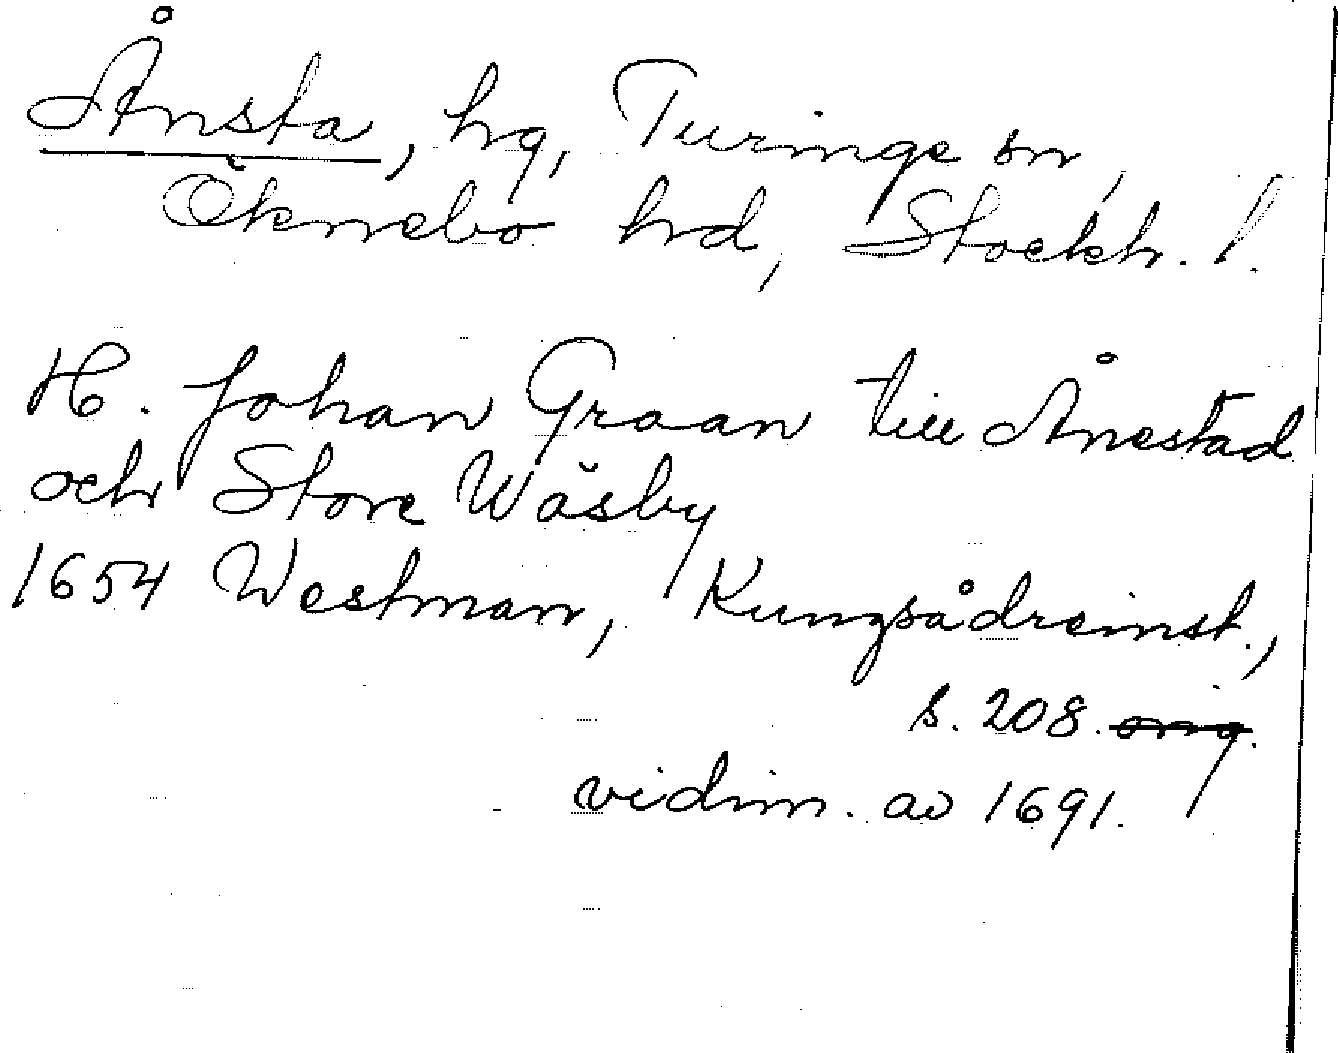 Ånsta, hg, Turinge sn,
Öknebo hrd, Stockh. l.
H. Johan Graan till Ånestad
och Store Wäsby
1654 Westman, Kungsådreinst.,
s. 208. orig.
vidim. av 1691.